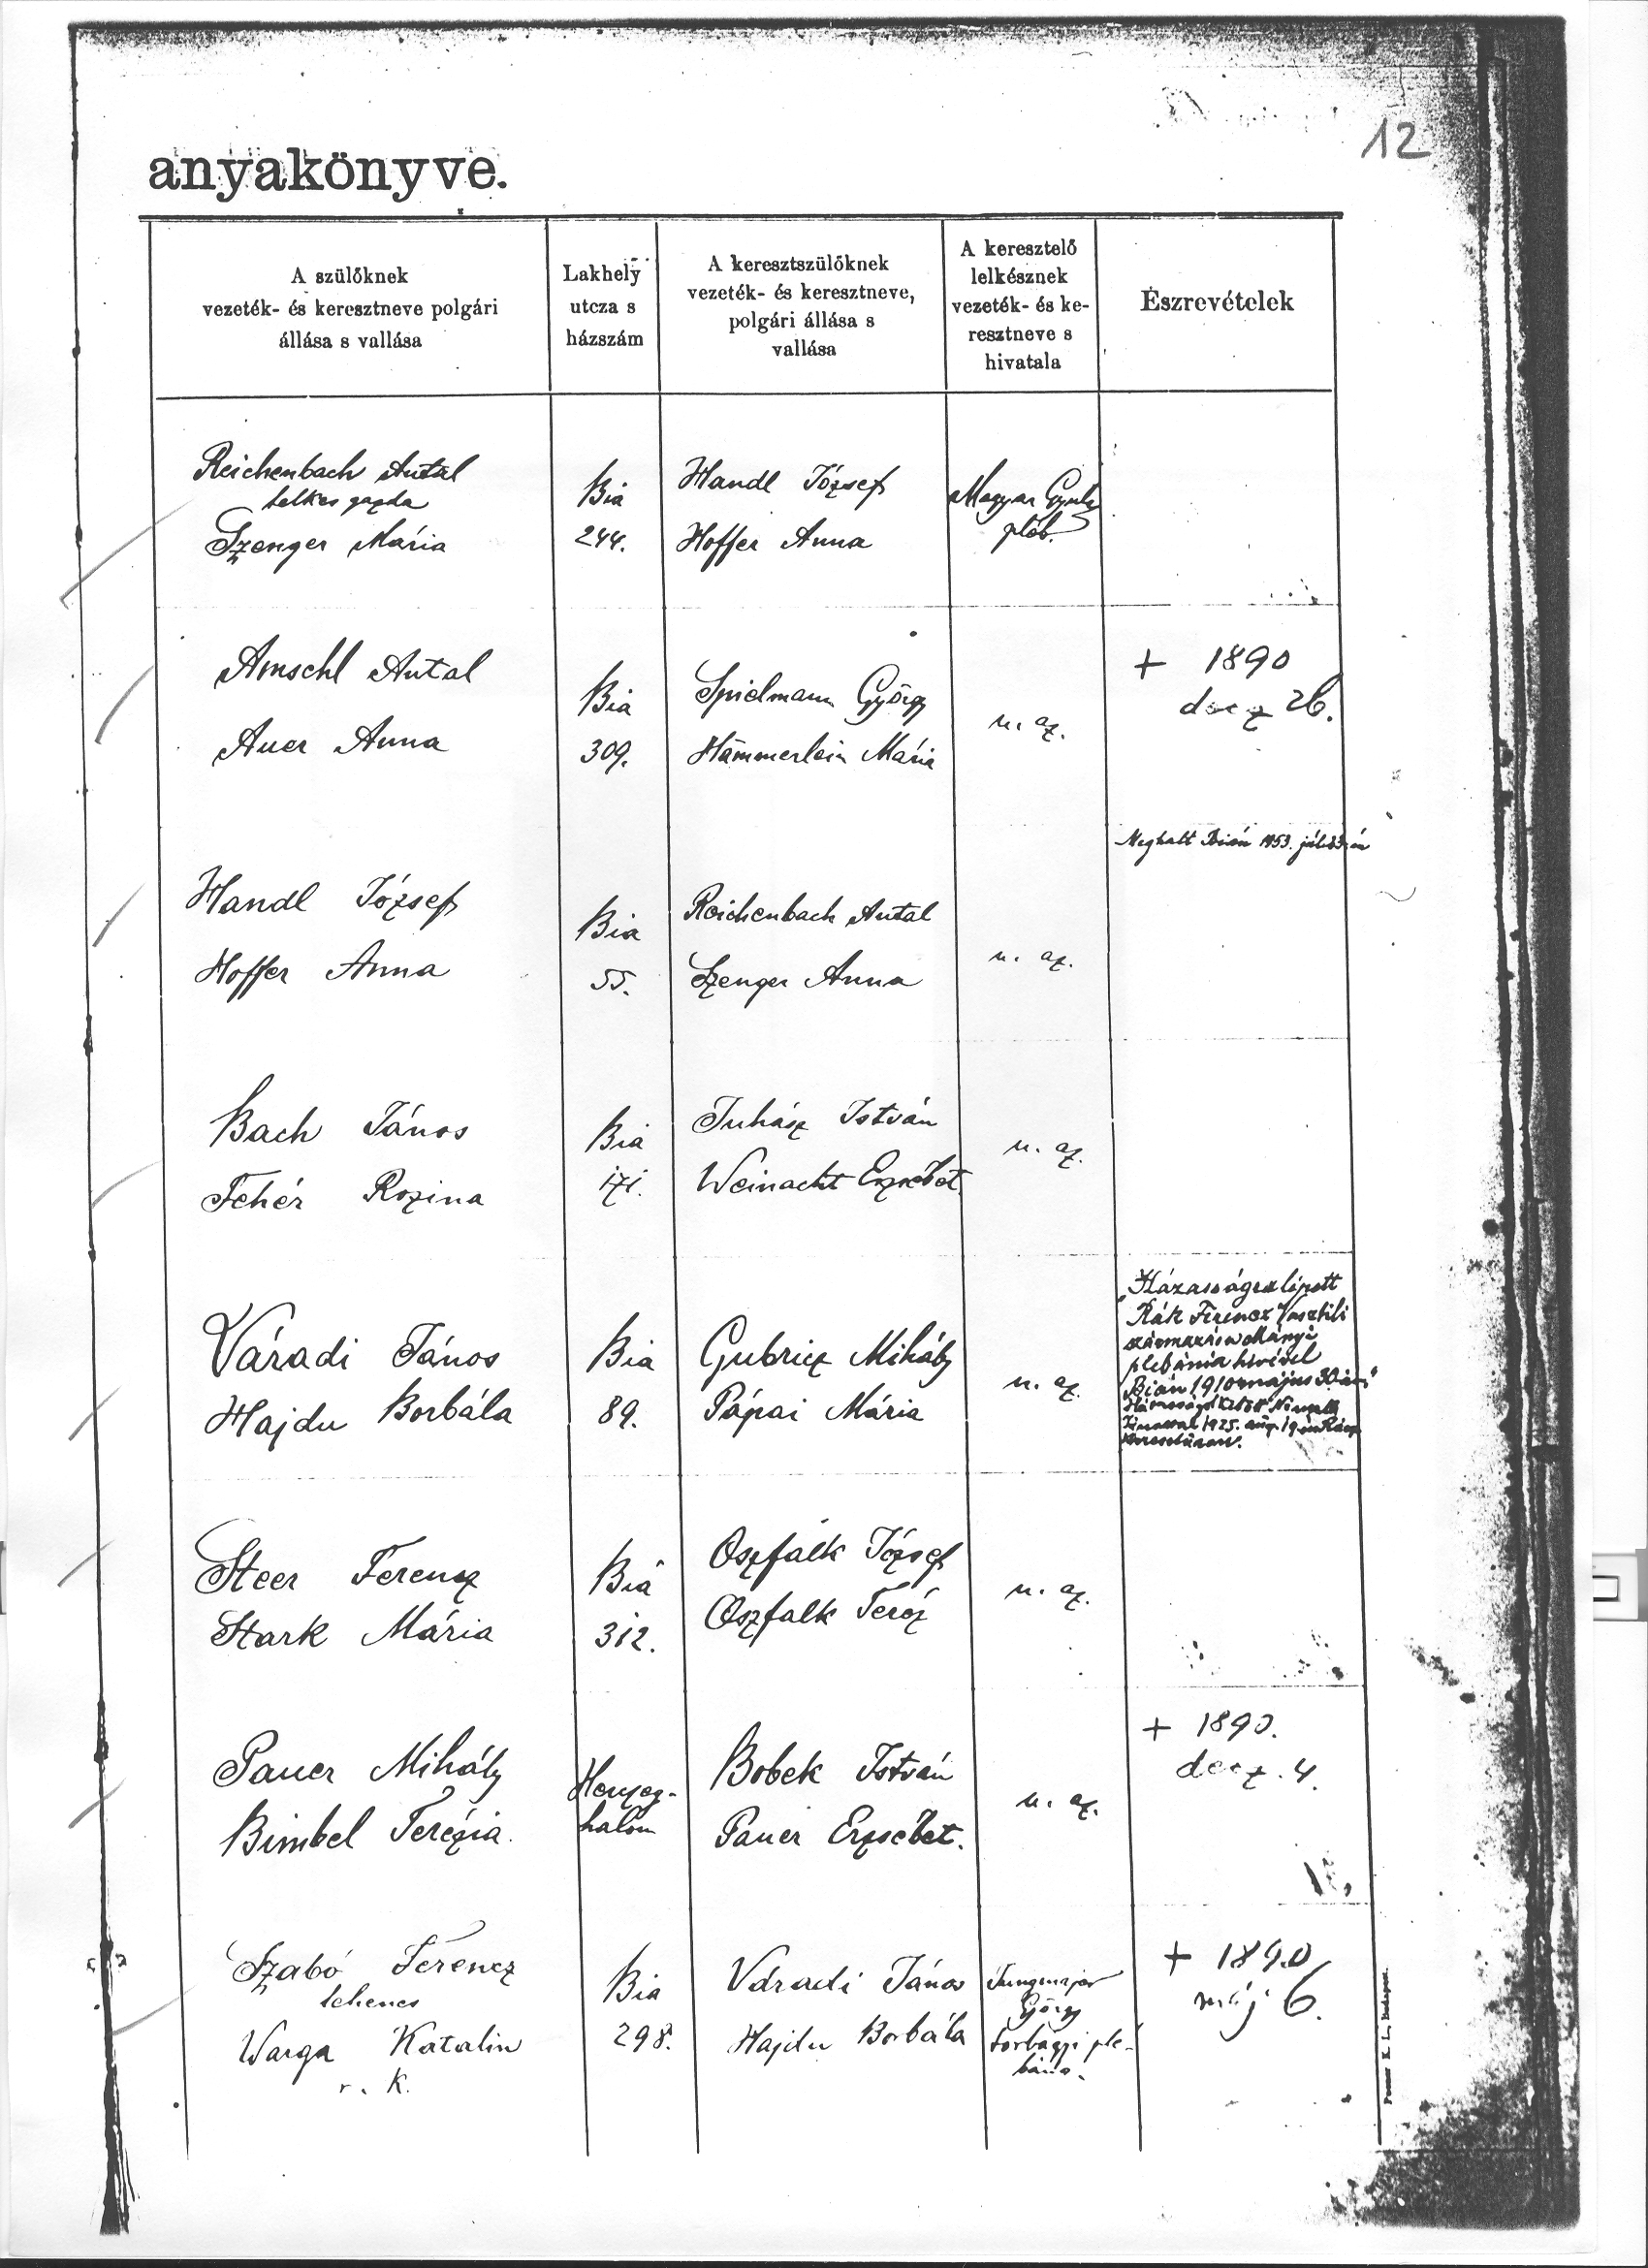 12
anyakönyve.
A szülőknek
vezeték- és keresztneve polgári
állása s vallása
Lakhely
utcza s
házszám
A keresztszülőknek
vezeték- és keresztneve,
polgári állása s
vallása
A keresztelő
lelkésznek
vezeték- és ke-
resztneve s
hivatala
Észrevételek
Reichenbach Antal
telkes gazda
Szenger Mária
Bia
244.
Handl József
Hoffer Anna
Magyar Gyula
pléb.
Amschl Antal
Auer Anna
Bia
309.
Spielmann György
Hämmerlein Mária
u. az.
+ 1890
decz 26.
Handl József
Hoffer Anna
Bia
55.
Reichenbach Antal
Szenger Anna
u. az.
Meghalt Bián 1953.
Bach János
Fehér Rozina
Bia
171.
Juhász István
Weinacht Erzsébet
u. az.
Váradi János
Hajdu Borbála
Bia
89.
Gubricz Mihály
Pápai Mária
u. az.
Házasságra lépett
Rák Ferencz
plébánia hívével
Bián 1910 május 30án
1925. aug. 19én Rácz
keresztúron.
Steer Ferencz
Stark Mária
Bia
312.
Oszfalk József
Oszfalk Teréz
u. az.
Pauer Mihály
Bimbel Terézia.
Herczeg-
halom
Bobek István
Pauer Erzsébet.
u. az.
+ 1890.
decz. 4.
Szabó Ferencz
Varga Katalin
r. k.
Bia
298.
Váradi János
Hajdu Borbála
Jungmajer
György
torbágyi plé-
bános.
+ 1890
máj 6.